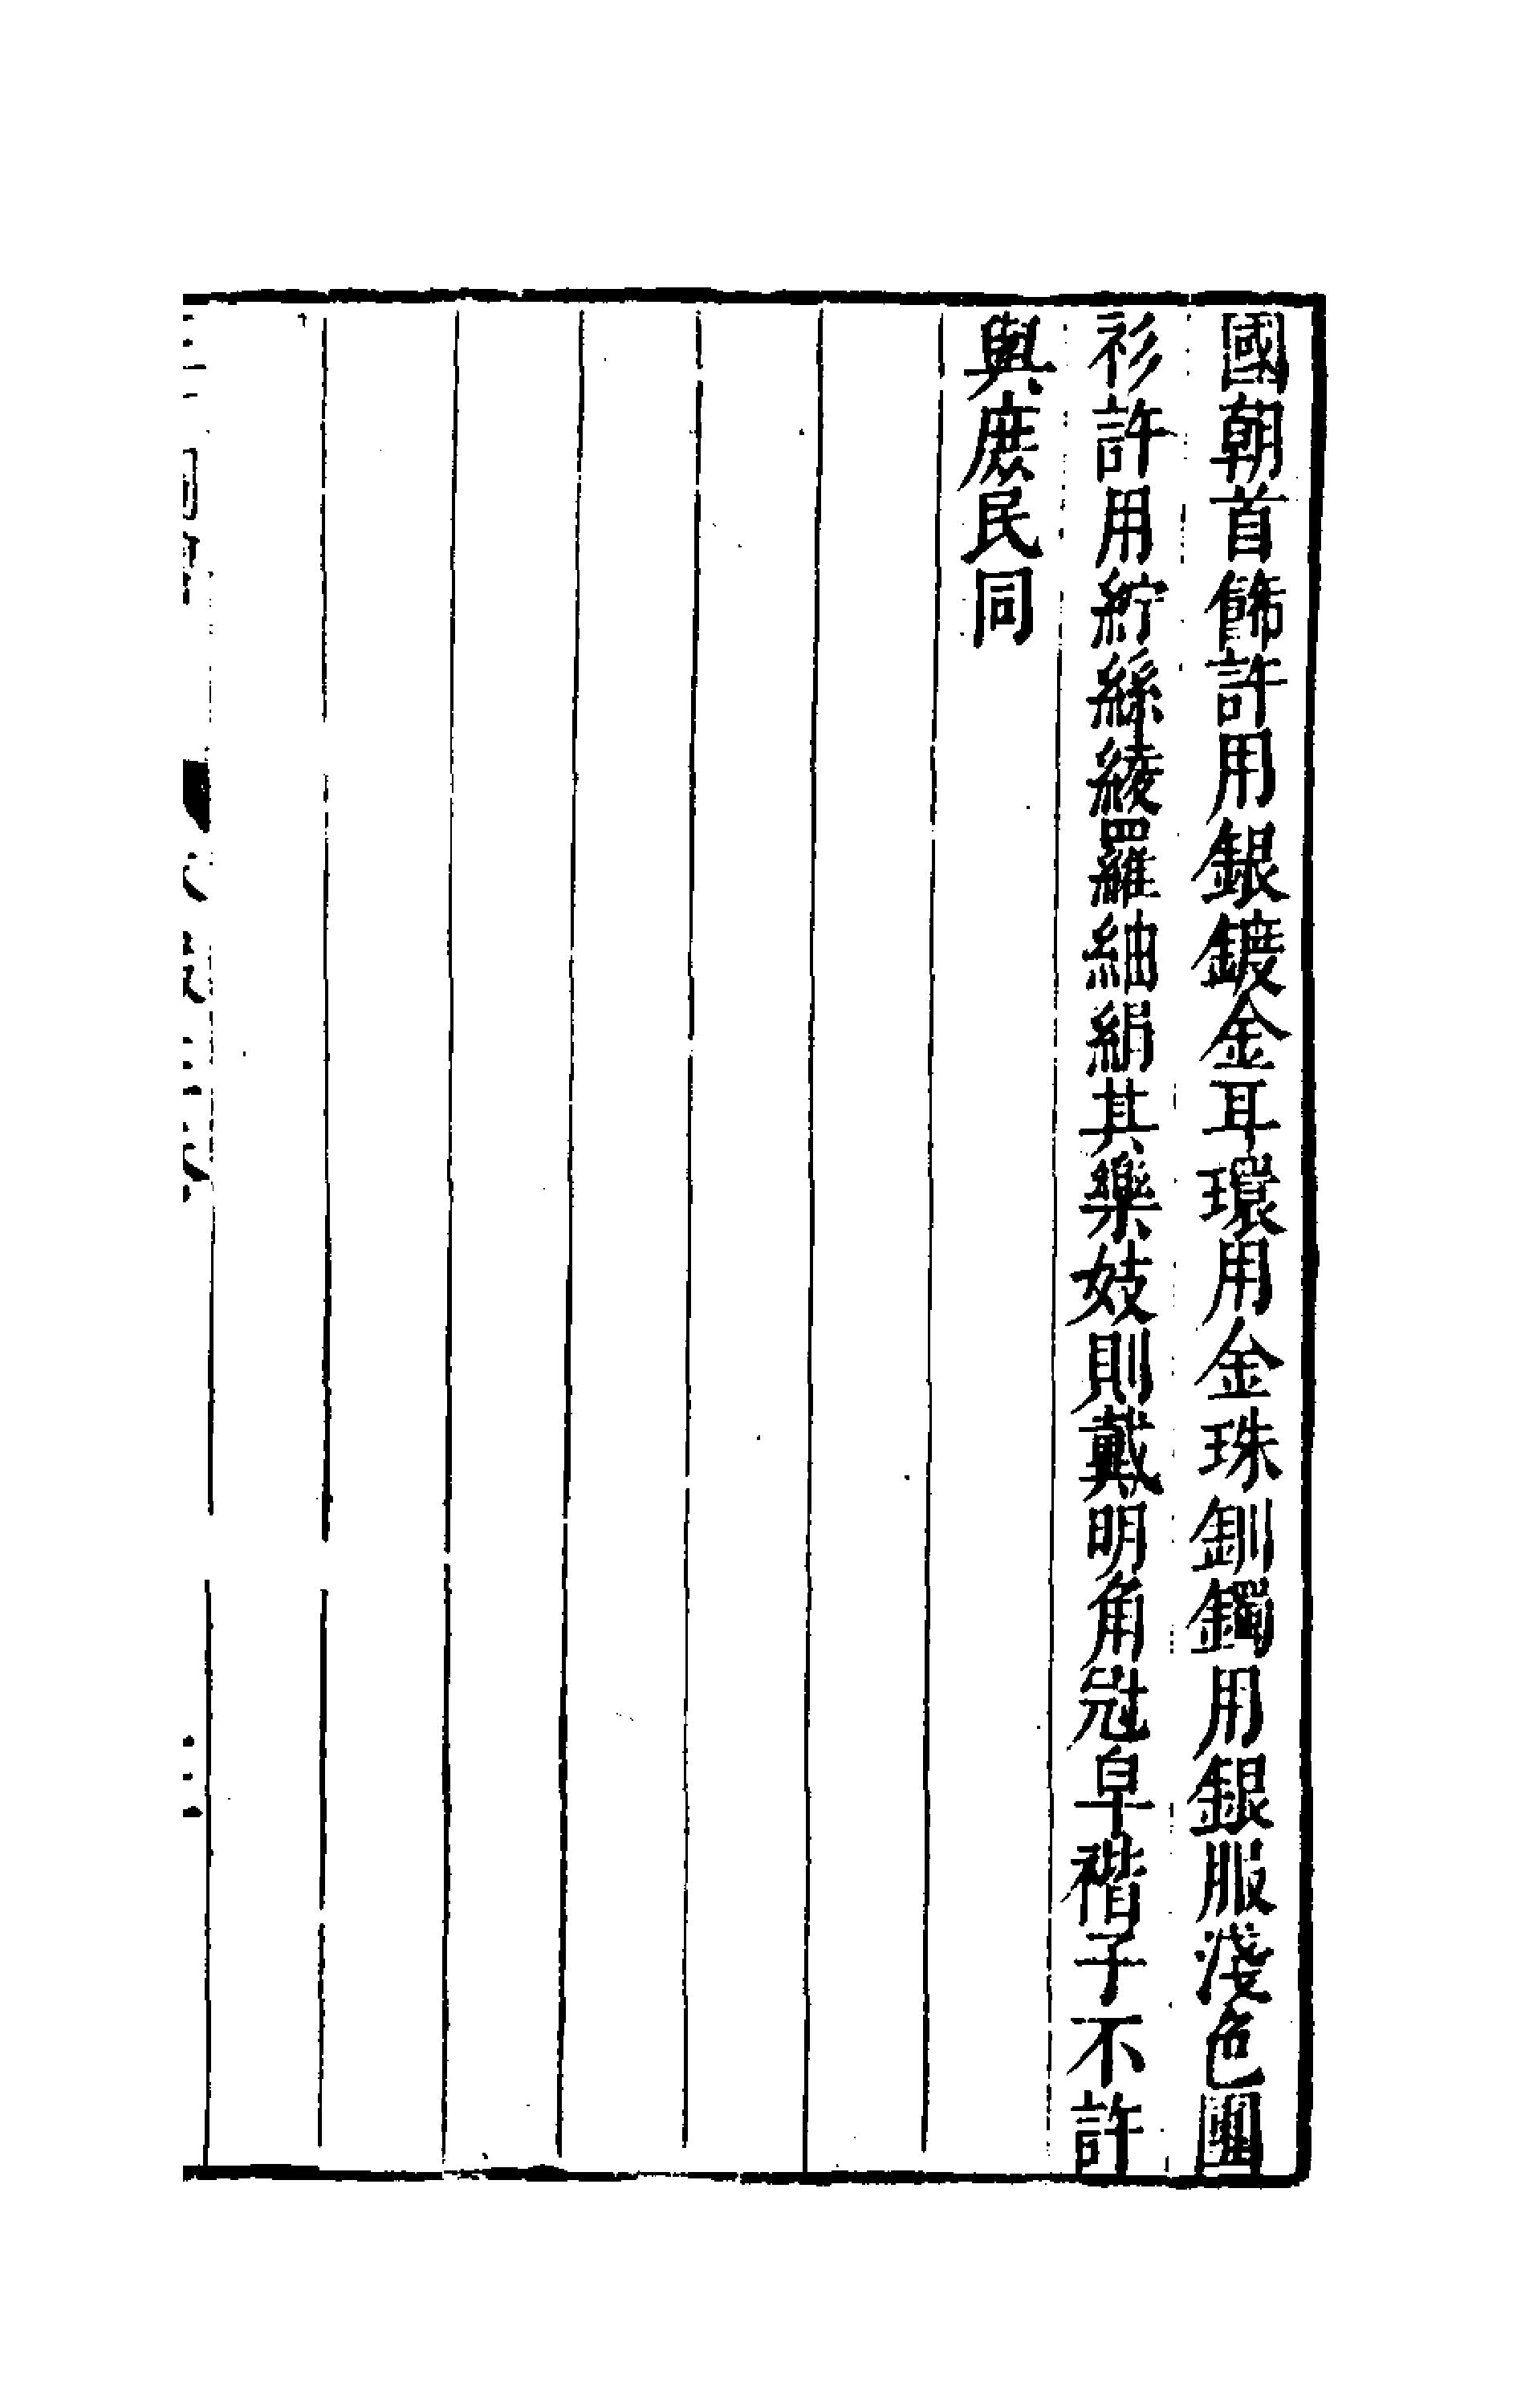 國朝首飾許用銀鍍金耳環用金珠釧鐲用銀服淺色團
衫許用紵絲綾羅紬絹其樂妓則戴明角冠皁褙子不許
與庶民同